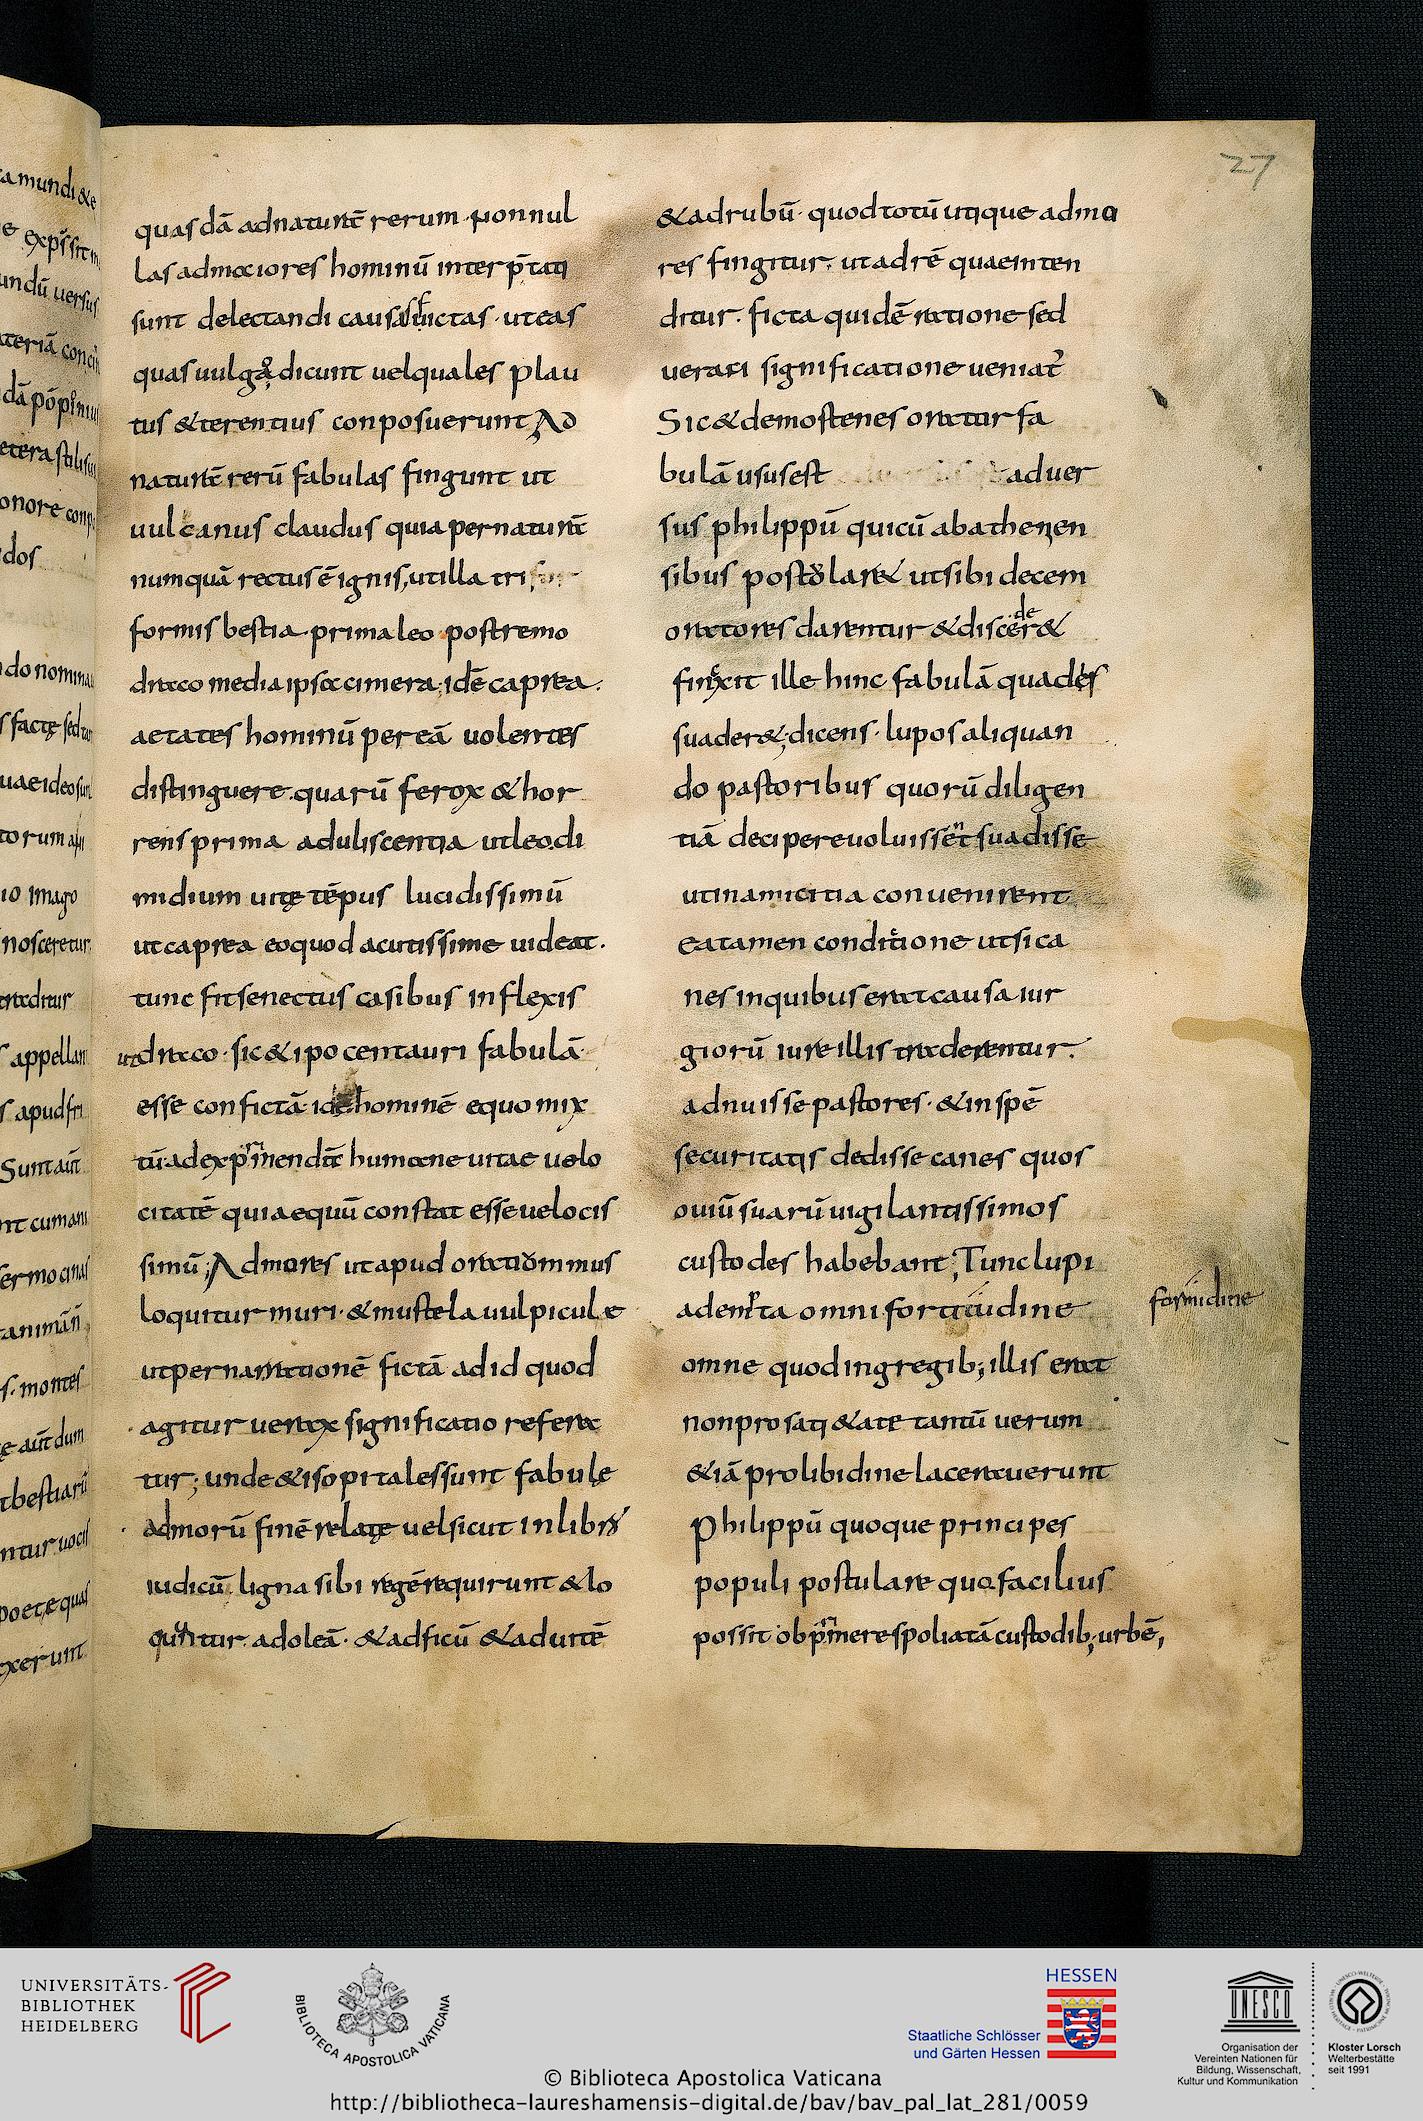 27
quasdā adnaturā rerum. nonnul
las admores hominū interp̄tati
sunt delectandi causa fictas. ut eas
quas uulgo dicunt uel quales plau
tus & terentius conposuerunt Ad
naturā rerū fabulas fingunt ut
uulcanus claudus quia per naturā
numquā rectus ē ignis, ut illa tri
formis bestia. prima leo postremo
draco media ipsa cimera. idē caprea.
aetates hominū per eā uolentes
distinguere. quarū ferox & hor
rens prima aduliscentia ut leo. di
midium uitę tēpus lucidissimū
ut caprea eo quod acutissime uideat.
tunc fit senectus casibus inflexis
draco. sic & ipocentauri fabulā
esse confictā id hominē equo mix
tū. ad exprimendā humane uitae uelo
citatē quia equū constat esse uelocis
simū; Ad mores ut apud oratiōm mus
loquitur muri. & mustela uulpicule
ut per narrationē fictā ad id quod
agitur uerax significatio refera
tur; unde & isopi tales sunt fabulę
ad morū finē relatę uel sicut in libro
iudicū. ligna sibi regē requirunt & lo
quntur. ad oleā. & ad ficū & ad uitē
& ad rubū. quod totū utique ad mo
res fingitur. ut ad rē quae inten
ditur. ficta quidē ratione sed
uerari significatione ueniat̄
Sic & demostenes orator fa
bulā usus est aduer
sus philippū qui cū ab athenen
sibus postolar& ut sibi decem
oratores darentur & discer&
de
finxit ille hinc fabulā qua des
suader&; dicens. lupos aliquan
do pastoribus quorū diligen
tiā decipere uoluissent suadisse
ut in amicitia conuenirent
ea tamen conditione ut si ca
nes in quibus erat causa iur
giorū iure illis traderentur.
adnuisse pastores. & in spē
securitatis dedisse canes quos
ouiū suarū uigilantissimos
custodes habebant; Tunc lupi
adempta omni fortitudine
formidine
omne quod in gregib; illis erat
non pro satietate tantū uerum
& iā pro libidine lacerauerunt
Philippū quoque principes
populi postulare quo facilius
possit opprimere spoliatā custodib; urbē,
UNIVERSITÄTS-
BIBLIOTHEK
HEIDELBERG
BIBLIOTECA APOSTOLICA VATICANA
HESSEN
Staatliche Schlösser
und Gärten Hessen
UNESCO
Organisation der
Vereinten Nationen für
Bildung, Wissenschaft,
Kultur und Kommunikation
Kloster Lorsch
Welterbestätte
seit 1991
© Biblioteca Apostolica Vaticana
http://bibliotheca-laureshamensis-digital.de/bav/bav_pal_lat_281/0059